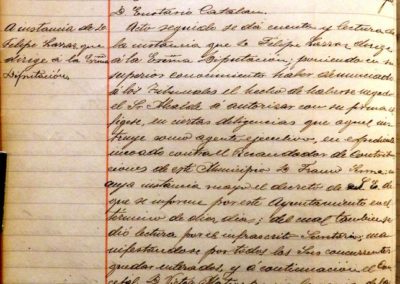 D. Eustasio Catalan.
A instancia de D.
Felipe Larraz que
direge á la Exma
Diputación.
Acto seguido se dá cuenta y lectura de
la instancia que D. Felipe Larraz direge
á la Exma Diputacion; poniendo en su
superior conocimiento haber denunciado
á los Tribunales el hecho de haberse negado
el Sr. Alcalde á autorizar con su firma
en ciertas diligencias que aquel ins
truye como agente ejecutivo, en expediente
incoado contra el Recaudador de Contribu
ciones de este Municipio D. Franco
cuya instancia el decreto de
que se informe por este Ayuntamiento en el
término de diez dias; del cual tambien se
dió lectura por el infrascrito Secretario; ma
nifestandose por todos los Sres concurrentes
quedar enterados, y á continuacion el Con
cejal D.